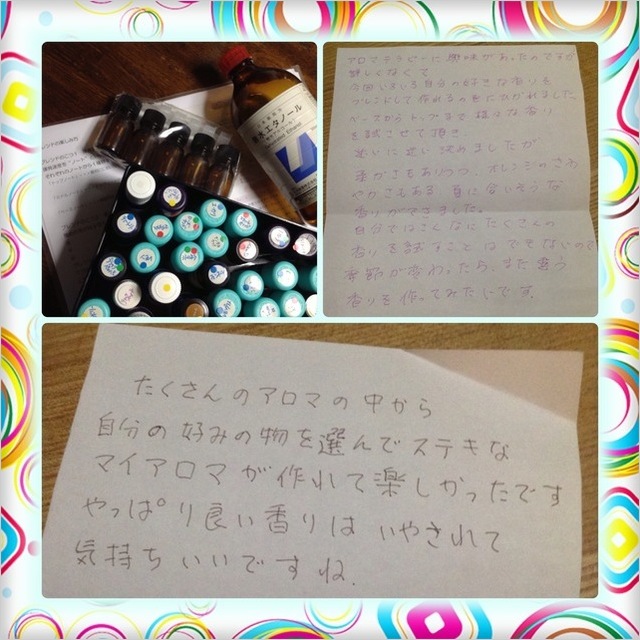 無水エタノール
アロマテラピーに興味があったのですが
難しくなくて
今回いろいろ自分の好きな香りを
ブレンドして作れるの
ベースからトップまで様々な香り
を試させて頂き
迷いに迷い決めましたが
爽やかさもありつつ、オレンジの
やかさもある 夏に合いそうな
香りができました。
自分ではこんなにたくさんの
香りを試すことはできないので
季節が変わったら、また違う
香りを作ってみたいです。
たくさんのアロマの中から
自分の好みの物を選んでステキな
マイアロマが作れて楽しかったです
やっぱり良い香りは いやされて
気持ちいいですね.